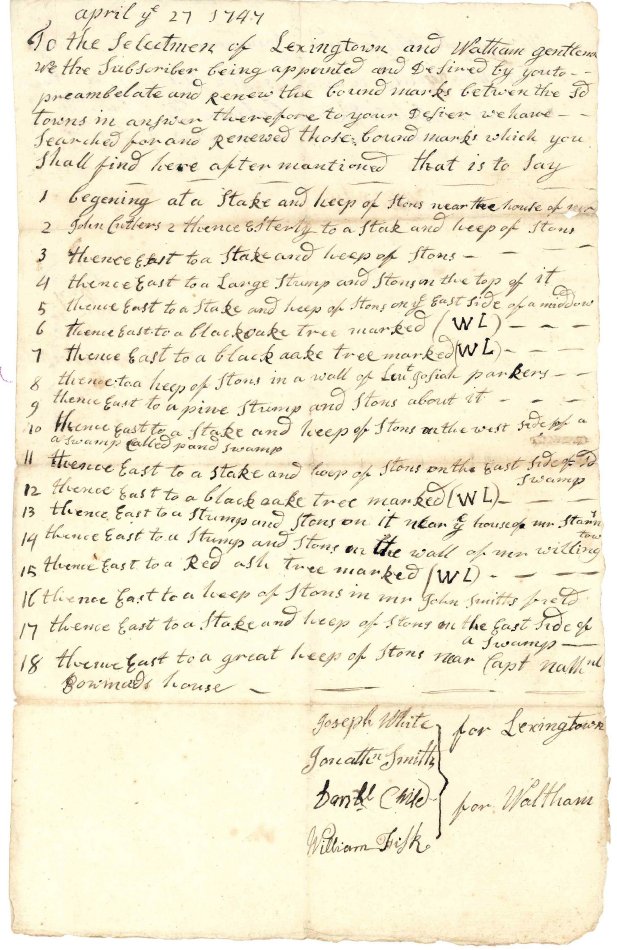 april ye 27 1747
To the Selectmen of Lexingtown and Waltham gentlemen
We the Subscriber being appointed and Desired by you to - -
preambelate and Renew the bound marks betwen the Sd
towns in answer therefore to your Desier we have - -
Searched for and Renewed those bound marks which you
Shall find here after mantioned that is to Say
1 begening at a Stake and heep of Stons near the house of mr
2 John Cutlers 2 thence Esterly to a Stak and heep of Stons
3 thence East to a Stake and heep of Stons - - - -
4 thence East to a Large Stump and Stons on the top of it
5 thence East to a Stake and heep of Stons on ye East Side of a middow
6 thence East to a black oake tree marked (WL) - - -
7 thence East to a black oake tree marked (WL) - - -
8 thence to a heep of Stons in a wall of Leut Josiah parkers - -
9 thence East to a pine Stump and Stons about it - - - -
10 thence East to a Stake and heep of Stons on the west Side of a
a Swamp called pand Swamp
11 thence East to a Stake and heep of Stons on the East Side of Sd
Swamp
12 thence East to a black oake tree marked (WL) - - - -
13 thence East to a Stump and Stons on it near ye house of mr Starn
tow
14 thence East to a Stump and Stons on the wall of mr willing
15 thence East to a Red ash tree marked (WL) - - - -
16 thence East to a heep of Stons in mr John Smiths feeld
17 thence East to a Stake and heep of Stons on the East Side of
a Swamp —
18 thence East to a great heep of Stons near Capt Nathnl
Bowmads house - - - - -
Joseph White
for Lexingtown
Jonathn Smith
Daniell Child
for Waltham
William Fisk